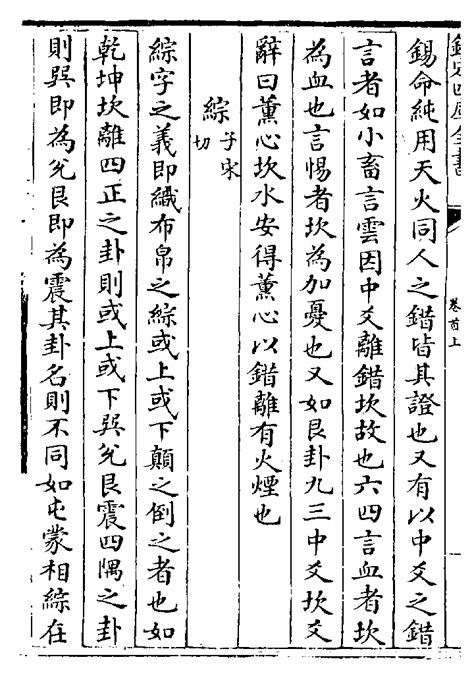 欽定四庫全書
卷首上
錫命純用天火同人之錯皆其證也又有以中爻之錯
言者如小畜言雲因中爻離錯坎故也六四言血者坎
為血也言惕者坎為加憂也又如艮卦九三中爻坎爻
辭曰薰心坎水安得薰心以錯離有火煙也
綜子宋切
綜字之義即織布帛之綜或上或下顛之倒之者也如
乾坤坎離四正之卦則或上或下巽兊艮震四隅之卦
則巽即為兊艮即為震其卦名則不同如屯蒙相綜在